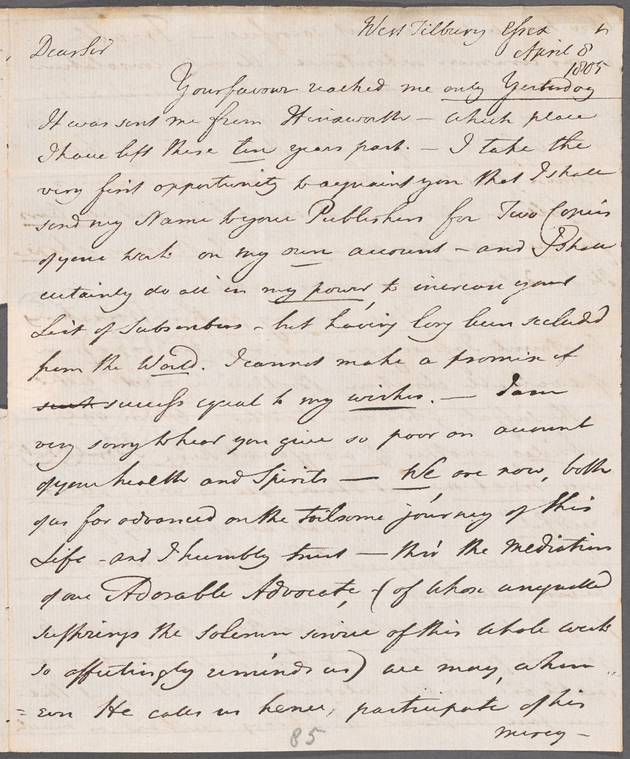 West Tilbury Essex
April 8
1805
Dear Sir
Your favour reached me only Yesterday
It was sent me from Hinxworth - which place
I have left these ten years past. - I take the
very first opportunity to acquaint you that I shall
send my Name to your Publishers for Two Copies
of your work on my own account - and I shall
certainly do all in my power, to increase your
List of Subscribers - but having long been secluded
from the World. I cannot make a promise of
such success equal to my wishes. - I am
very sorry to hear you give so poor an account
of your health and Spirits - We are now, both
of us far advanced on the toilsome journey of this
Life - and I humbly trust - thro' the Mediation
of our Adorable Advocate, (of whose unequalled
sufferings the solemn service of this whole week
so affectingly reminds us) we may, when
ever He calls us hence, participate of his
mercy -
85